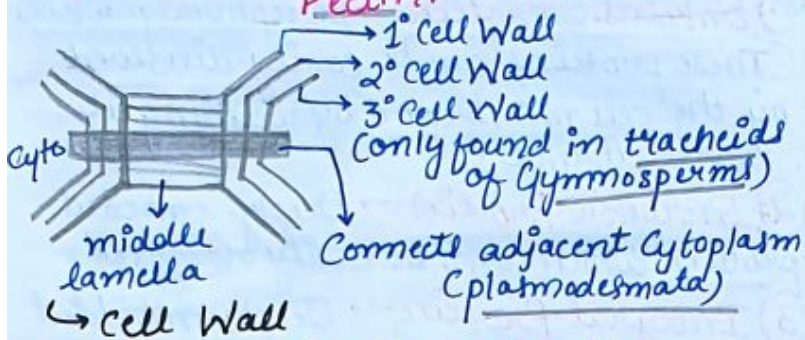 → 1° Cell Wall
→ 2° Cell Wall
→ 3° Cell Wall
(only found in tracheids
of Gymnosperms)
Cyto
middle
lamella
Connects adjacent Cytoplasm
(plasmodesmata)
↳ Cell Wall